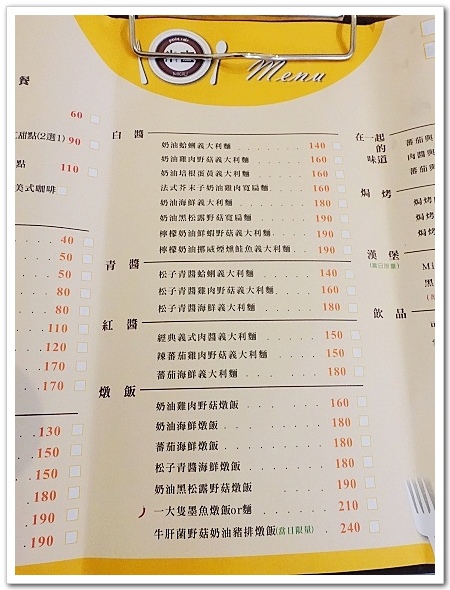 Menu
餐
60
甜點(2選1) 90
點
110
美式咖啡
40
50
50
80
80
110
120
170
170
130
150
150
180
190
190
白醬
奶油蛤蜊義大利麵 140
奶油雞肉野菇義大利麵 160
奶油培根蛋黃義大利麵 160
法式芥末子奶油雞肉寬扁麵 160
奶油海鮮義大利麵 180
奶油黑松露野菇寬扁麵 190
檸檬奶油鮮蝦義大利麵 190
檸檬奶油挪威煙燻鮭魚義大利麵 190
青醬
松子青醬蛤蜊義大利麵 140
松子青醬雞肉野菇義大利麵 160
松子青醬海鮮義大利麵 180
紅醬
經典義式肉醬義大利麵 150
辣蕃茄雞肉野菇義大利麵 150
蕃茄海鮮義大利麵 180
燉飯
奶油雞肉野菇燉飯 160
奶油海鮮燉飯 180
蕃茄海鮮燉飯 180
松子青醬海鮮燉飯 180
奶油黑松露野菇燉飯 190
一大隻墨魚燉飯or麵 210
牛肝菌野菇奶油豬排燉飯(當日限量) 240
在一起
的
味道
蕃茄與
肉醬與
蕃茄與
焗烤
焗烤
焗烤
焗烤
漢堡
(當日限量)
Mi
黑
飲品